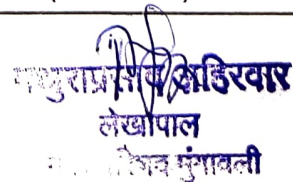 मथुराप्रसाद अहिरवार
लेखापाल
मुंगावली